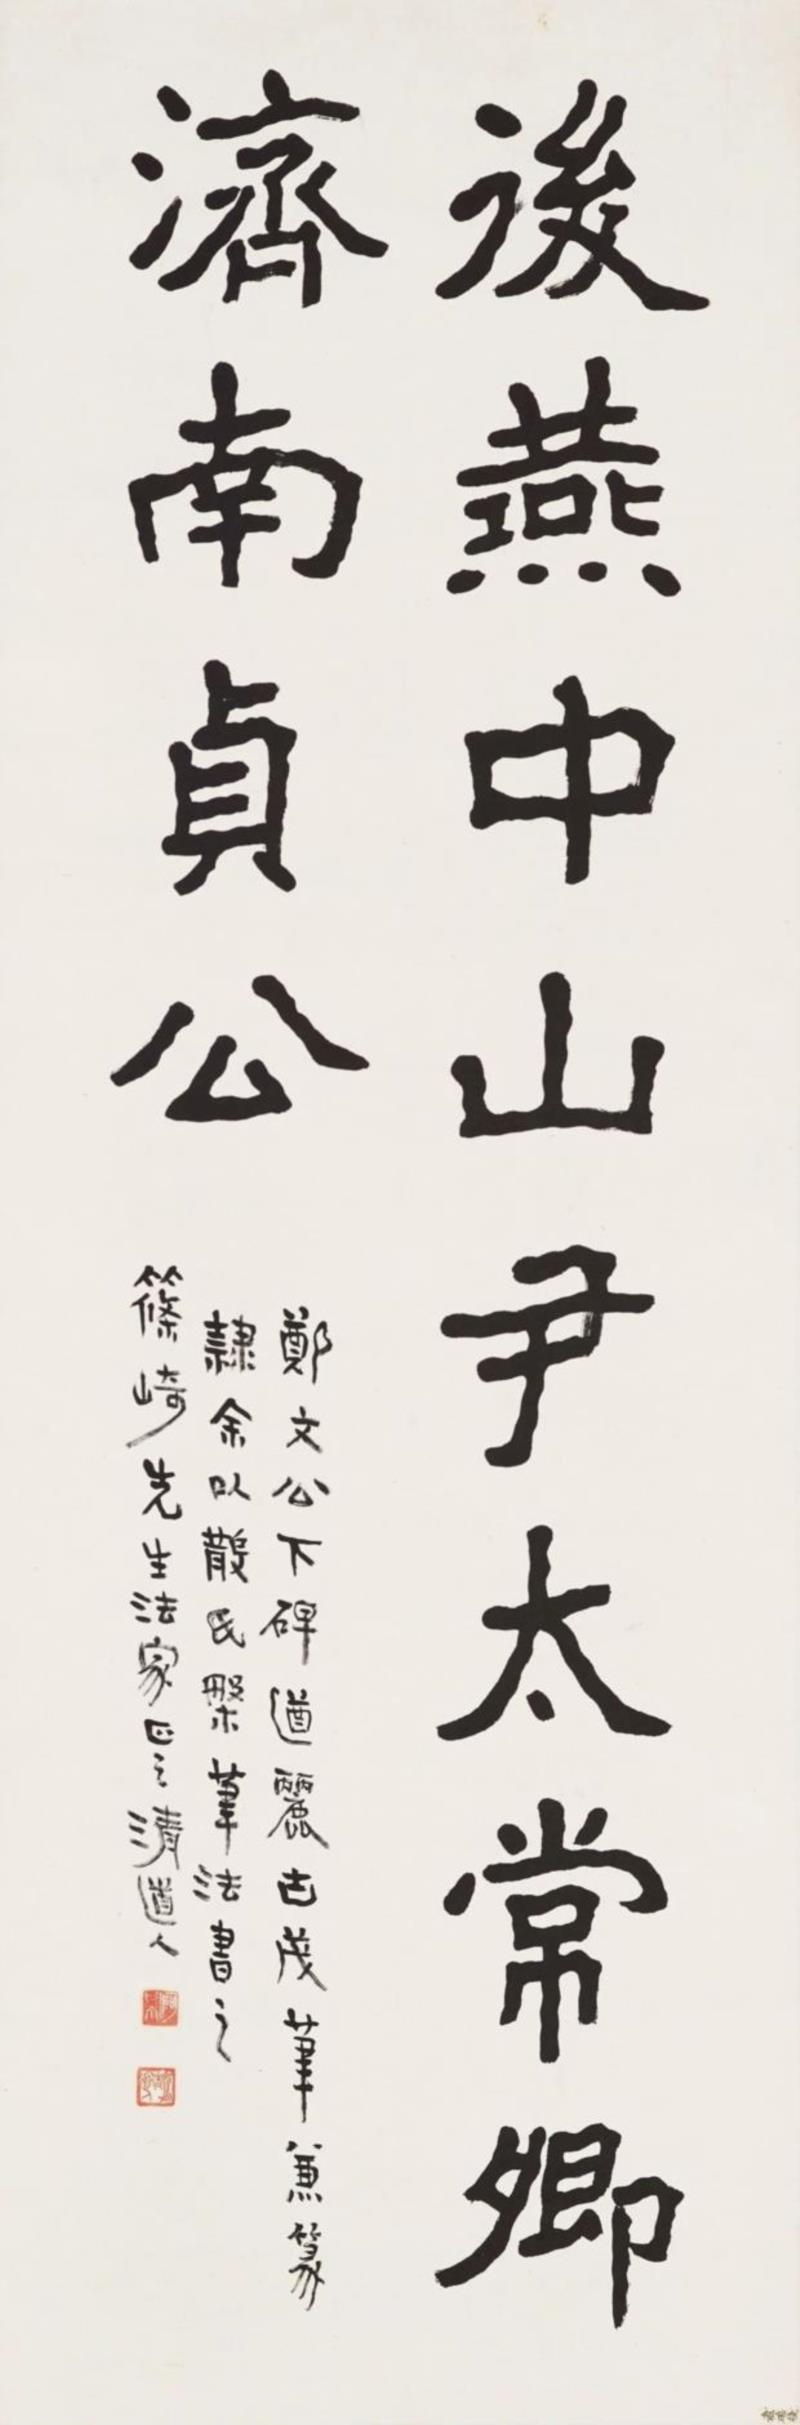 後燕中山尹太常卿
濟南貞公
鄭文公下碑遒麗古茂筆兼篆
隸余以散氏槃筆法書之
篠崎先生法家正之清道人